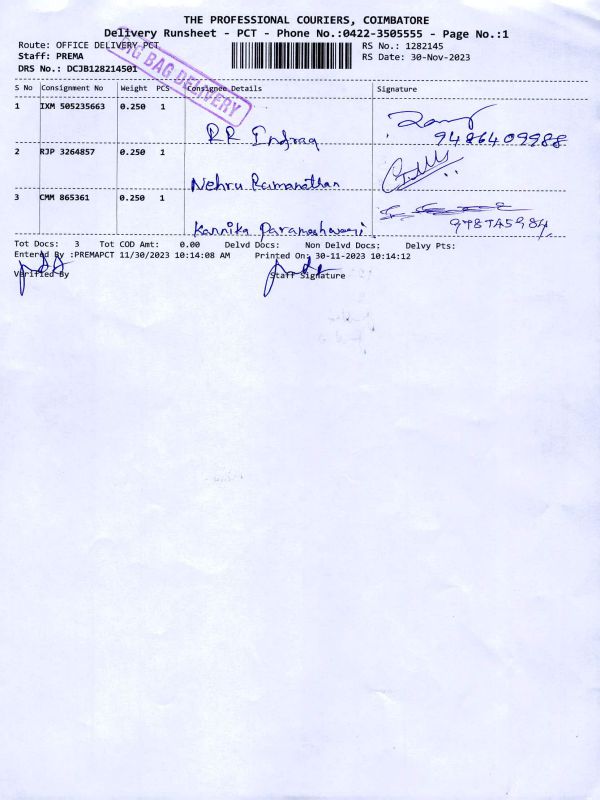 THE PROFESSIONAL COURIERS, COIMBATORE
Delivery Runsheet - PCT - Phone No.:0422-3505555 - Page No.:1
Route: OFFICE DELIVERY-PCT RS No.: 1282145
Staff: PREMA RS Date: 30-Nov-2023
DRS No.: DCJB128214501
BIG BAG DELIVERY
S No Consignment No Weight PCS Consignee Details Signature
1 IXM 505235663 0.250 1
RR Infraa 9486409988
2 RJP 3264857 0.250 1
Nehru Ramanathan
3 CMM 865361 0.250 1
Kannika Parameshwari
Tot Docs: 3 Tot COD Amt: 0.00 Delvd Docs: Non Delvd Docs: Delvy Pts:
Entered By :PREMAPCT 11/30/2023 10:14:08 AM Printed On: 30-11-2023 10:14:12
Verified By Staff Signature